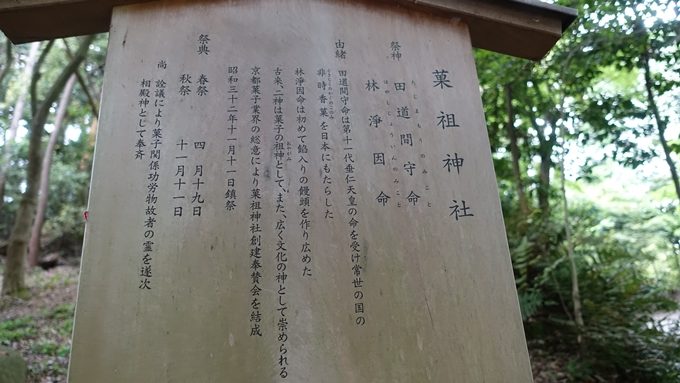 菓祖神社
祭神
田道間守命
たじまもりのみこと
林淨因命
はやしじょういんのみこと
由緒
田道間守命は第十一代垂仁天皇の命を受け常世の国の
非時香菓を日本にもたらした
林淨因命は初めて餡入りの饅頭を作り広めた
古来、二神は菓子の祖神として、また、広く文化の神として崇められる
京都菓子業界の総意により菓祖神社創建奉賛会を結成
昭和三十二年十一月十一日鎮祭
祭典
春祭 四月十九日
秋祭 十一月十一日
尚 詮議により菓子関係功労物故者の霊を逐次
相殿神として奉斉